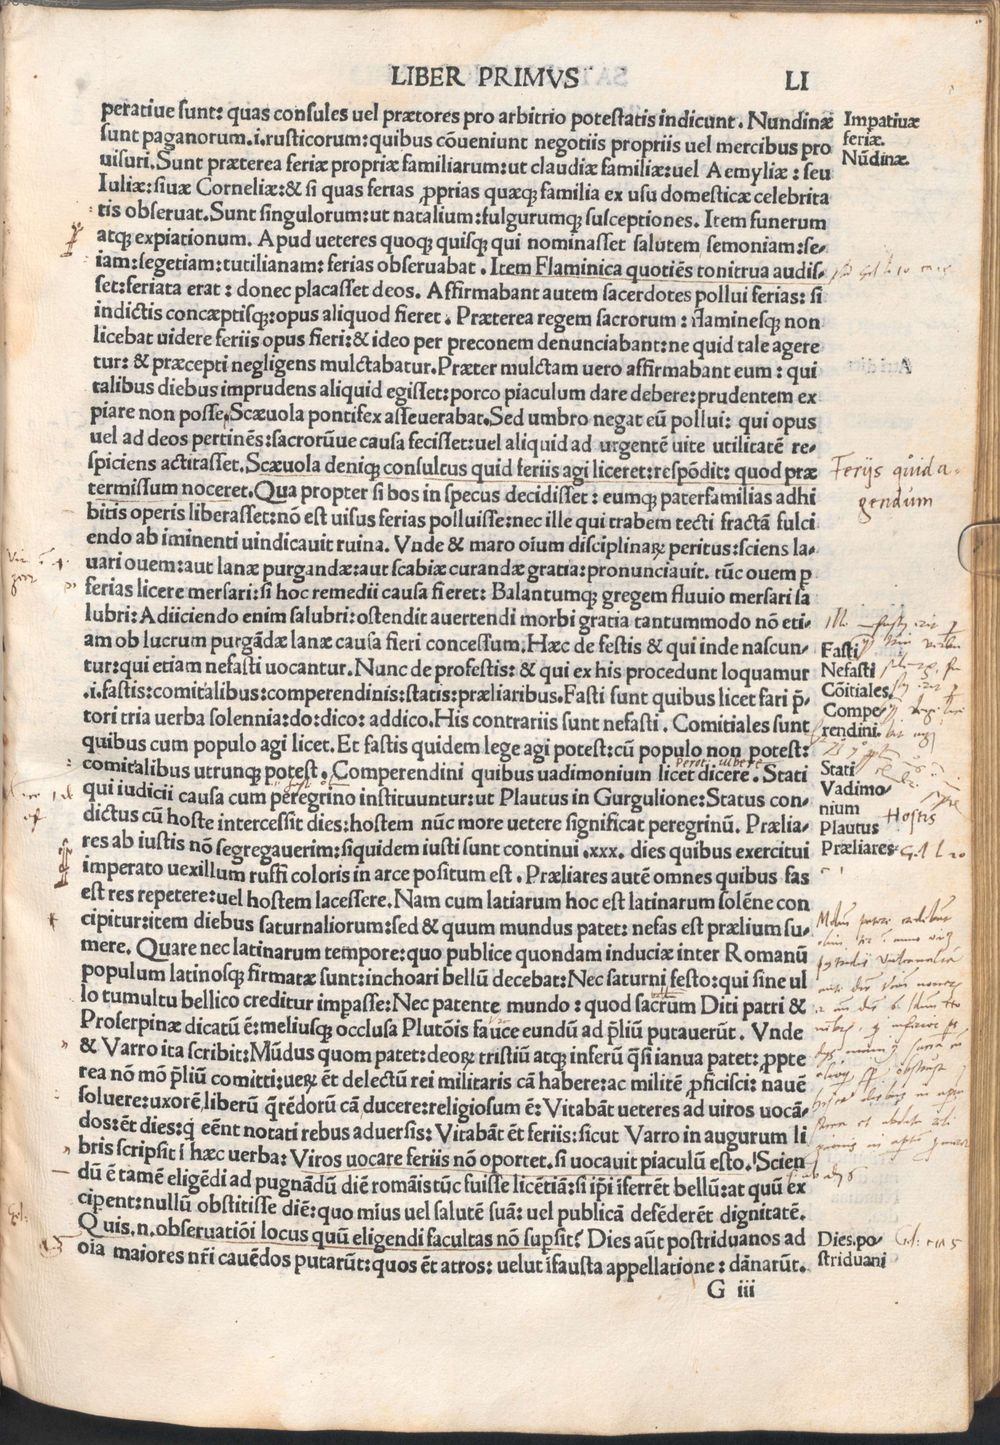 LIBER PRIMVS
LI
peratiue sunt: quas consules uel prætores pro arbitrio potestatis indicunt. Nundinæ
sunt paganorum.i.rusticorum:quibus cōueniunt negotiis propriis uel mercibus pro
uisuri.Sunt præterea feriæ propriæ familiarum:ut claudiæ familiæ:uel Aemyliæ: seu
Iuliæ:siuæ Corneliæ:& si quas ferias ꝓprias quæqꝫ familia ex usu domesticæ celebrita
tis obseruat.Sunt singulorum:ut natalium:fulgurumqꝫ susceptiones. Item funerum
atqꝫ expiationum. Apud ueteres quoqꝫ quisqꝫ qui nominasset salutem semoniam:se-
iam:segetiam:tutilianam: ferias obseruabat. Item Flaminica quotiēs tonitrua audis-
set:feriata erat: donec placasset deos. Affirmabant autem sacerdotes pollui ferias: si
indictis concæptisqꝫ:opus aliquod fieret. Præterea regem sacrorum: flaminesqꝫ non
licebat uidere feriis opus fieri:& ideo per preconem denunciabant:ne quid tale agere
tur: & præcepti negligens mulctabatur.Præter mulctam uero affirmabant eum: qui
talibus diebus imprudens aliquid egisset:porco piaculum dare debere:prudentem ex
piare non posse.Scæuola pontifex asseuerabat.Sed umbro negat eū pollui: qui opus
uel ad deos pertinēs:sacrorūue causa fecisset:uel aliquid ad urgentē uite utilitatē re-
spiciens actitasset.Scæuola deniqꝫ consultus quid feriis agi liceret:respōdit: quod præ
termissum noceret.Qua propter si bos in specus decidisset: eumqꝫ paterfamilias adhi
bitis operis liberasset:nō est uisus ferias polluisse:nec ille qui trabem tecti fractā fulci
endo ab iminenti uindicauit ruina. Vnde & maro oīum disciplinaꝝ peritus:sciens la-
uari ouem:aut lanæ purgandæ:aut scabiæ curandæ gratia:pronunciauit. tūc ouem ꝑ
ferias licere mersari:si hoc remedii causa fieret: Balantumqꝫ gregem fluuio mersari sa
lubri:Adiiciendo enim salubri:ostendit auertendi morbi gratia tantummodo nō eti-
am ob lucrum purgādæ lanæ causa fieri concessum.Hæc de festis & qui inde nascun-
tur:qui etiam nefasti uocantur. Nunc de profestis: & qui ex his procedunt loquamur
.i.fastis:comitalibus:comperendinis:statis:præliaribus.Fasti sunt quibus licet fari p̄-
tori tria uerba solennia:do:dico: addico.His contrariis sunt nefasti. Comitiales sunt
quibus cum populo agi licet.Et fastis quidem lege agi potest:cū populo non potest:
comitalibus utrunqꝫ potest. Comperendini quibus uadimonium licet dicere. Stati
qui iudicii causa cum peregrino instituuntur:ut Plautus in Gurgulione:Status con-
dictus cū hoste intercessit dies:hostem nūc more uetere significat peregrinū. Prælia-
res ab iustis nō segregauerim:siquidem iusti sunt continui .xxx. dies quibus exercitui
imperato uexillum russi coloris in arce positum est. Præliares autē omnes quibus fas
est res repetere:uel hostem lacessere. Nam cum latiarum hoc est latinarum solēne con
cipitur:item diebus saturnaliorum:sed & quum mundus patet: nefas est prælium su-
mere. Quare nec latinarum tempore:quo publice quondam induciæ inter Romanū
populum latinosqꝫ firmatæ sunt:inchoari bellū decebat:Nec saturni festo:qui sine ul
lo tumultu bellico creditur impasse:Nec patente mundo: quod sacrum Diti patri &
Proserpinæ dicatū ē:meliusqꝫ occlusa Plutōis fauce eundū ad p̄liū putauerūt. Vnde
& Varro ita scribit:Mūdus quom patet:deoꝝ tristiū atqꝫ inferū q̄si ianua patet: ꝓpte
rea nō mō p̄liū comitti:ueꝝ ēt delectū rei militaris cā habere:ac militē ꝓficisci: nauē
soluere:uxorē liberū q̄rēdorū cā ducere:religiosum ē: Vitabāt ueteres ad uiros uocā-
dos:ēt dies:q̇ eēnt notati rebus aduersis: Vitabāt ēt feriis:sicut Varro in augurum li
bris scripsit ī hæc uerba: Viros uocare feriis nō oportet.si uocauit piaculū esto.Scien
dū ē tamē eligēdi ad pugnādū diē romāis tūc fuisse licētiā:si ip̄i īferrēt bellū:at quū ex
cipent:nullū obstitisse diē:quo mius uel salutē suā: uel publicā defēderēt dignitatē.
Quis.n.obseruatiōi locus quū eligendi facultas nō supsit? Dies aūt postriduanos ad
oīa maiores nr̄i cauēdos putarūt:quos ēt atros: uelut īfausta appellatione: dānarūt.
G iii
Impatiuæ
feriæ.
Nūdinæ.
Ferijs quid a-
gendum
Fasti
Nefasti
Cōitiales.
Compe-
rendini.
Stati
Vadimo-
nium
Plautus
Hostis
Præliares
Dies.po-
striduani